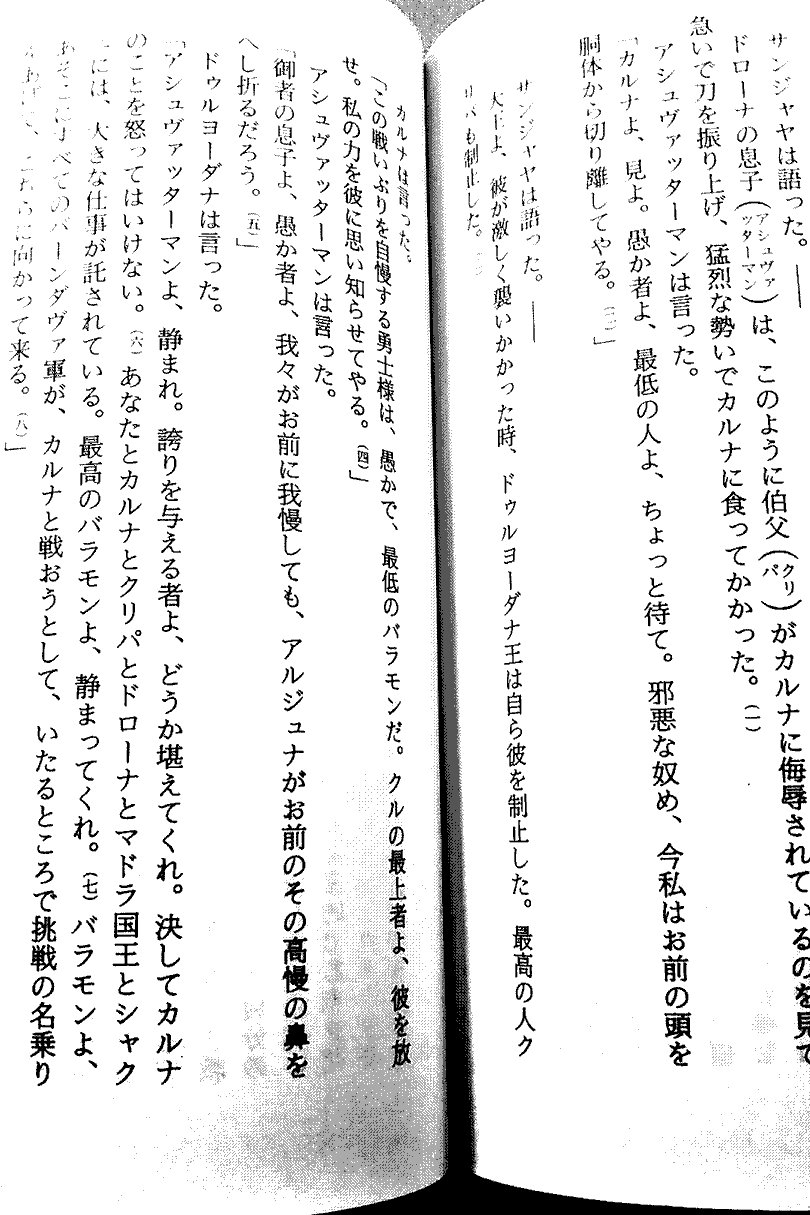 サンジャヤは語った。――
ドローナの息子（アシュヴァッターマン）は、このように伯父（クリパ）がカルナに侮辱されているのを見て
急いで刀を振り上げ、猛烈な勢いでカルナに食ってかかった。（一）
アシュヴァッターマンは言った。
「カルナよ、見よ。愚か者よ、最低の人よ、ちょっと待て。邪悪な奴め、今私はお前の頭を
胴体から切り離してやる。（二）」
サンジャヤは語った。――
大王よ、彼が激しく襲いかかった時、ドゥルヨーダナ王は自ら彼を制止した。最高の人ク
リパも制止した。
カルナは言った。
「この戦いぶりを自慢する勇士様は、愚かで、最低のバラモンだ。クルの最上者よ、彼を放
せ。私の力を彼に思い知らせてやる。（四）」
アシュヴァッターマンは言った。
「御者の息子よ、愚か者よ、我々がお前に我慢しても、アルジュナがお前のその高慢の鼻を
へし折るだろう。（五）」
ドゥルヨーダナは言った。
「アシュヴァッターマンよ、静まれ。誇りを与える者よ、どうか堪えてくれ。決してカルナ
のことを怒ってはいけない。（六）あなたとカルナとクリパとドローナとマドラ国王とシャク
には、大きな仕事が託されている。最高のバラモンよ、静まってくれ。（七）バラモンよ、
あそこにすべてのパーンダヴァ軍が、カルナと戦おうとして、いたるところで挑戦の名乗り
をあげて、こちらに向かって来る。（八）」